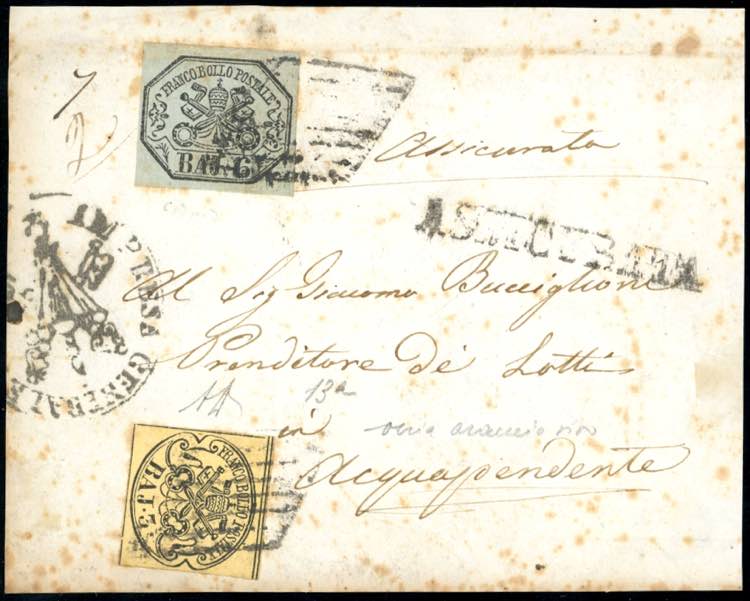 FRANCO BOLLO POSTALE
BAJ. 6
Assicurata
ASSICURATA
IMPRESA GENERALE
Al Sig Giacomo Bucciglione
Prenditore de' Lotti
13a
in
Acquapendente
FRANCO BOLLO POSTALE
BAJ.